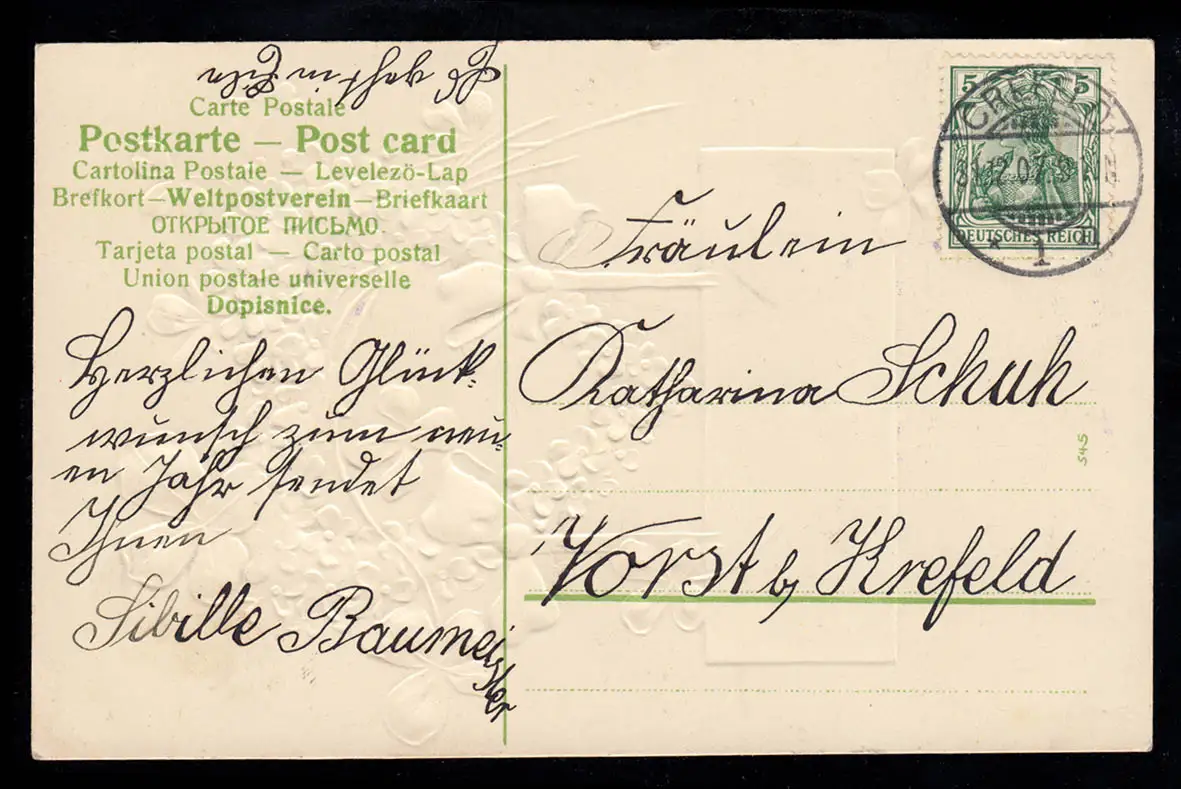 Carte Postale
Postkarte — Post card
Cartolina Postale — Levelezö-Lap
Brefkort—Weltpostverein—Briefkaart
ОТКРЫТОЕ ПИСЬМО.
Tarjeta postal — Carto postal
Union postale universelle
Dopisnice.
Herzlichen Glück-
wunsch zum neu-
en Jahr sendet
Ihnen
Sibille Baumeister
5 5
DEUTSCHES REICH
CREFELD
31.12.07.5
* 1
Fräulein
Katharina Schuh
Vorst b, Krefeld
545